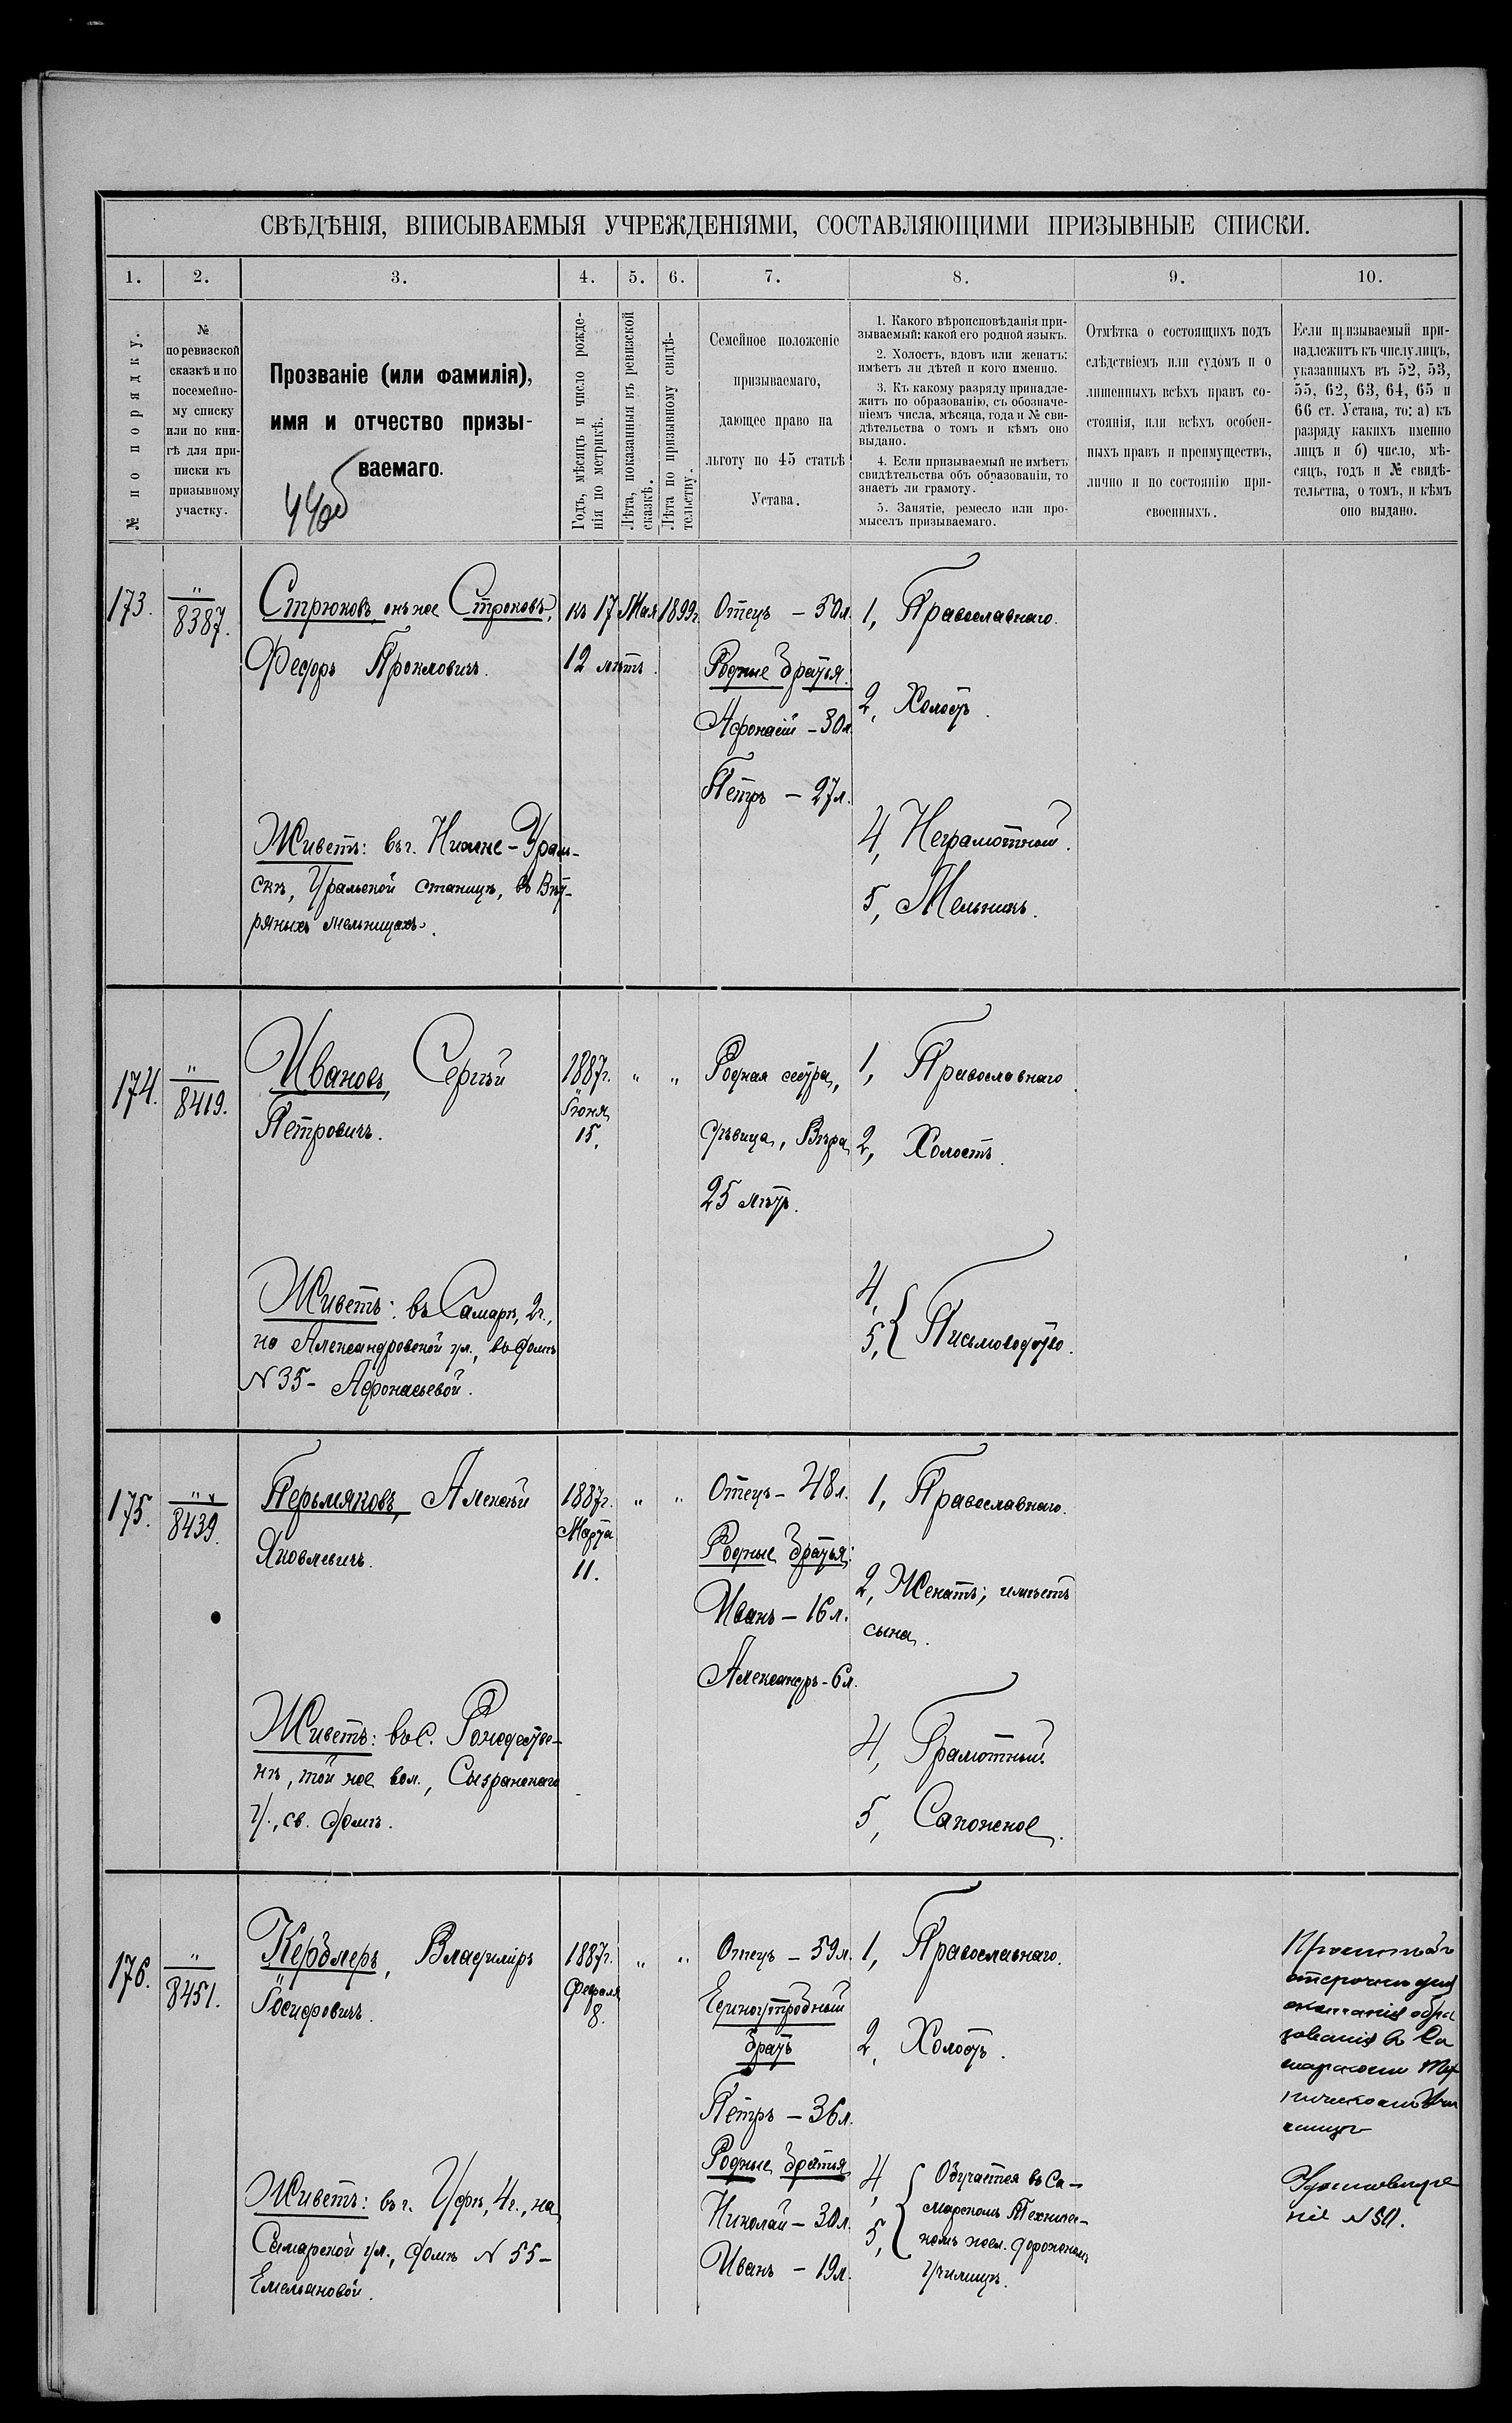 СВѢДѢНІЯ, ВПИСЫВАЕМЫЯ УЧРЕЖДЕНІЯМИ, СОСТАВЛЯЮЩИМИ ПРИЗЫВНЫЕ СПИСКИ.
1. 2. 3. 4. 5. 6. 7. 8. 9. 10.
№ по порядку.
№
по ревизской
сказкѣ и по
посемейно-
му списку
или по кни-
гѣ для при-
писки къ
призывному
участку.
Прозваніе (или фамилія),
имя и отчество призы-
ваемаго.
Годъ, мѣсяцъ и число рожде-
нія по метрикѣ.
Лѣта, показанныя въ ревизской
сказкѣ.
Лѣта по призывному свидѣ-
тельству.
Семейное положеніе
призываемаго,
дающее право на
льготу по 45 статьѣ
Устава.
1. Какого вѣроисповѣданія при-
зываемый: какой его родной языкъ.
2. Холостъ, вдовъ или женатъ:
имѣетъ ли дѣтей и кого именно.
3. Къ какому разряду принадле-
житъ по образованію, съ обозначе-
ніемъ числа, мѣсяца, года и № сви-
дѣтельства о томъ и кѣмъ оно
выдано.
4. Если призываемый не имѣетъ
свидѣтельства объ образованіи, то
знаетъ ли грамоту.
5. Занятіе, ремесло или про-
мыселъ призываемаго.
Отмѣтка о состоящихъ подъ
слѣдствіемъ или судомъ и о
лишенныхъ всѣхъ правъ со-
стоянія, или всѣхъ особен-
ныхъ правъ и преимуществъ,
лично и по состоянію при-
своенныхъ.
Если призываемый при-
надлежитъ къ числу лицъ,
указанныхъ въ 52, 53,
55, 62, 63, 64, 65 и
66 ст. Устава, то: а) къ
разряду какихъ именно
лицъ и б) число, мѣ-
сяцъ, годъ и № свидѣ-
тельства, о томъ, и кѣмъ
оно выдано.
173.
"
8387.
Стрюковъ, онъ же Строковъ,
Федоръ Прокловичъ.
Живетъ: въ г. Нижне-Ураль-
скѣ, Уральской станицѣ, въ Вѣт-
ряныхъ мельницахъ.
къ 17 Мая 1899г.
12 лѣтъ.
Отецъ – 50л.
Родные братья.
Афонасій – 30л.
Петръ – 27л.
1, Православнаго.
2, Холостъ.
4, Неграмотный.
5, Мельникъ.
174.
"
8419.
Ивановъ, Сергѣй
Петровичъ.
Живетъ: въ Самарѣ, 2ч.,
на Александровской ул., въ домѣ
N 35 – Афонасьевой.
1887г.
Іюня
15.
" "
Родная сестра,
дѣвица, Вѣра
25 лѣтъ.
1, Православнаго
2, Холостъ.
4,
5, { Письмоводство.
175.
"
8439.
Пермяковъ, Алексѣй
Яковлевичъ.
Живетъ: въ с. Рождестве-
нѣ, той же вол., Сызранскаго
у., св. домѣ.
1887г.
Марта
11.
" "
Отецъ – 48л.
Родные братья:
Иванъ – 16л.
Александръ – 6л.
1, Православнаго.
2, Женатъ; имѣетъ
сына.
4, Грамотный.
5, Сапожное.
176.
"
8451.
Керблеръ, Владиміръ
Іосифовичъ.
Живетъ: въ г. Уфѣ, 4ч., на
Самарской ул., домѣ N 55 –
Емельяновой.
1887г.
Февраля
8.
" "
Отецъ – 59л.
Единоутробный
братъ
Петръ – 36л.
Родные братья
Николай – 30л.
Иванъ – 19л.
1, Православнаго.
2, Холостъ.
4,
5, { Обучается въ Са-
марскомъ Техничес-
комъ жел. дорожномъ
училищѣ.
отсрочки для
окончанія обра
зованія въ Са
марскомъ Тех
ническомъ Учи
лищѣ
N 50.